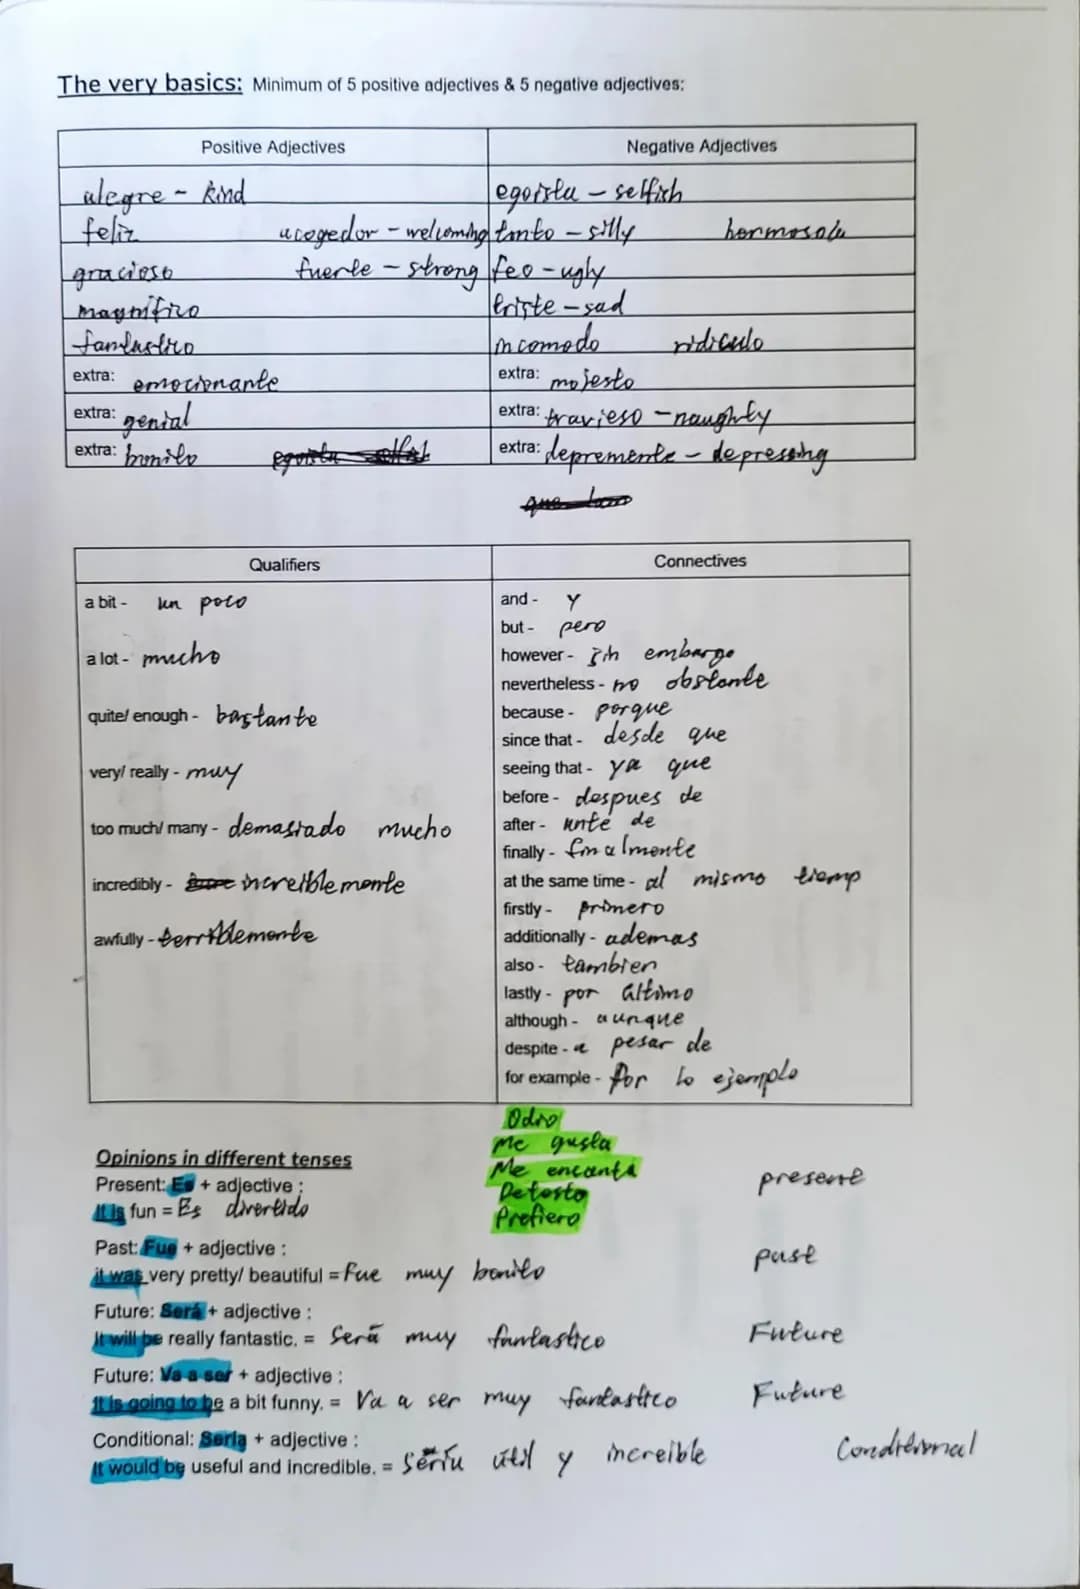 The very basics: Minimum of 5 positive adjectives & 5 negative adjectives:
Positive Adjectives
Negative Adjectives
alegre - kind
egoista - selfish
feliz
acogedor - welcoming
tonto - silly
gracioso
fuerte - strong
feo - ugly
magnífico
triste - sad
fantastico
incomodo
ridiculo
extra: emocionante
extra: molesto
extra: genial
extra: travieso - naughty
extra: bonito
extra: depremente - depressing
Qualifiers
Connectives
a bit - un poco
a lot - mucho
quite/ enough - bastante
very/ really - muy
too much/ many - demasiado mucho
incredibly - increiblemente
awfully - terriblemente
and - y
but - pero
however - sin embargo
nevertheless - no obstante
because - porque
since that - desde que
seeing that - ya que
before - despues de
after - ante de
finally - finalmente
at the same time - al mismo tiemp
firstly - primero
additionally - ademas
also - tambien
lastly - por último
although - aunque
despite - a pesar de
for example - por lo ejemplo
Odio
Me gusta
Me encanta
Detesto
Prefiero
Opinions in different tenses
Present: Es + adjective :
present
It is fun = Es divertido
Past: Fue + adjective :
past
it was very pretty/ beautiful = Fue muy bonito
Future: Será + adjective :
It will be really fantastic. = Será muy fantastico
Future
Future: Va a ser + adjective :
It is going to be a bit funny. = Va a ser muy fantastico
Future
Conditional: Sería + adjective :
It would be useful and incredible. = Sería útil y increible
Conditional